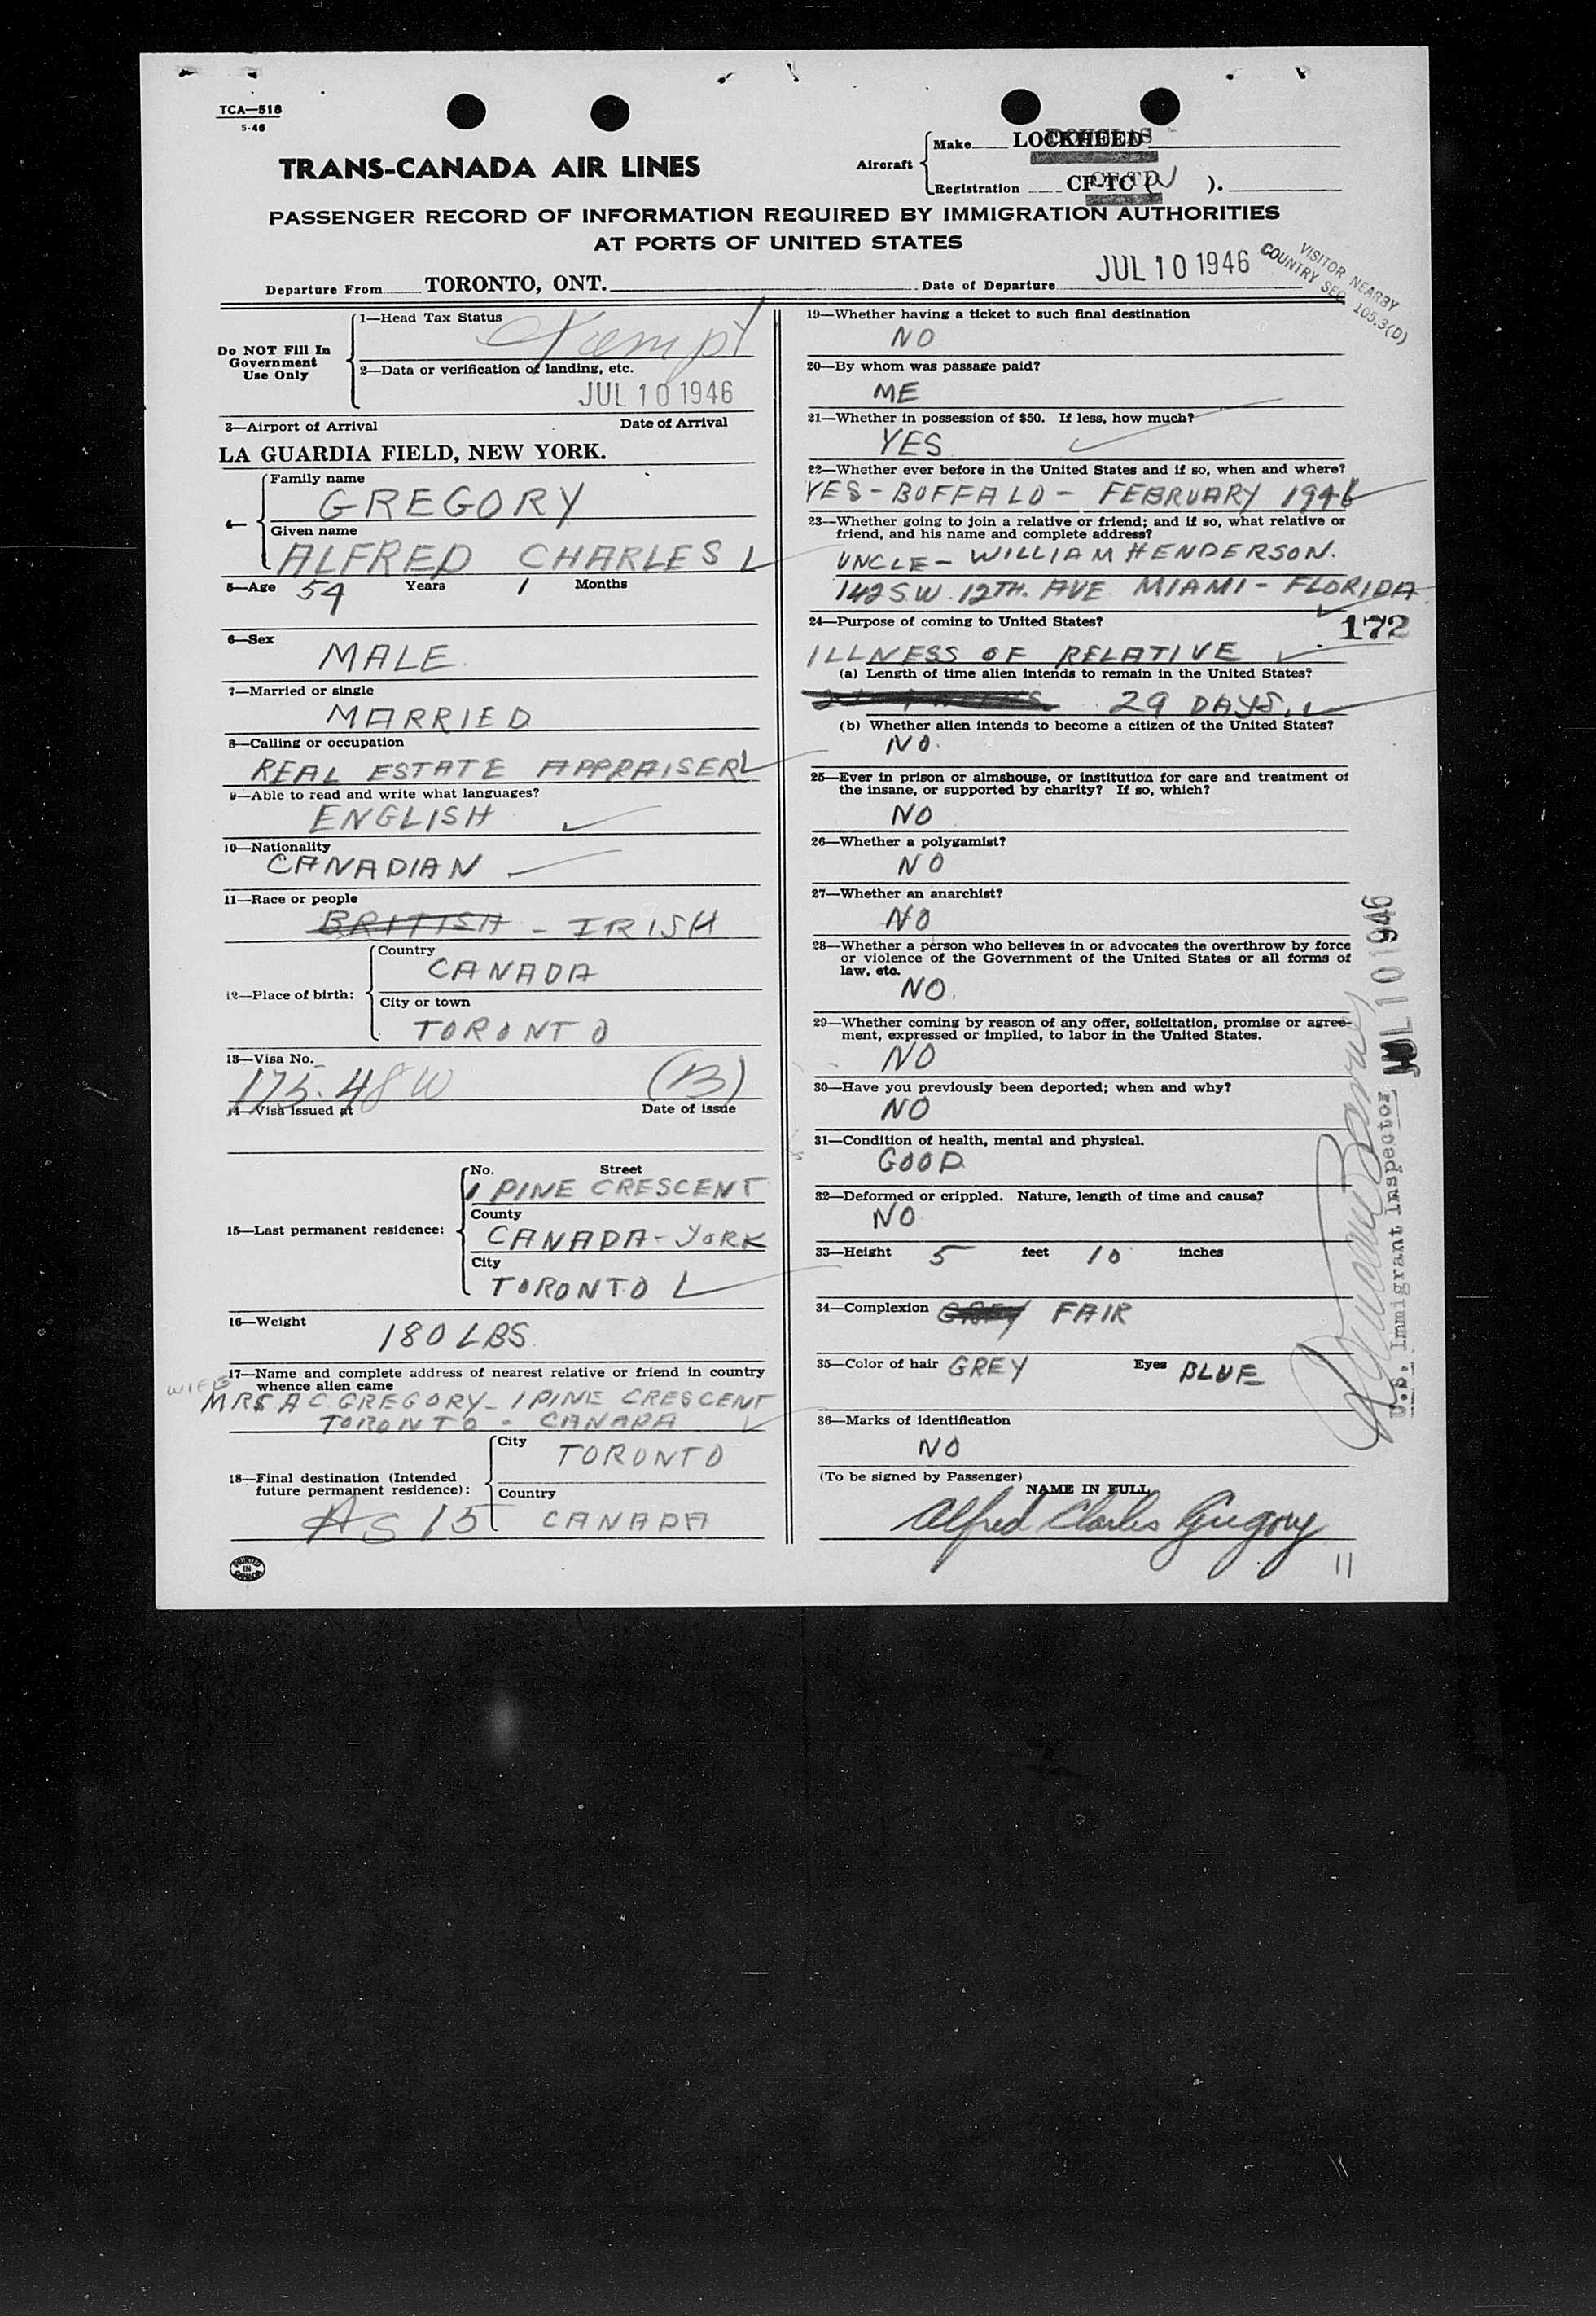 TCA—518
5-46
TRANS-CANADA AIR LINES
Aircraft
Make LOCKHEED DOUGLAS
Registration CF-TC ( ).
PASSENGER RECORD OF INFORMATION REQUIRED BY IMMIGRATION AUTHORITIES
AT PORTS OF UNITED STATES
VISITOR NEARBY
COUNTRY SEC 105.3(D)
Departure From TORONTO, ONT. Date of Departure JUL 10 1946
Do NOT Fill In
Government
Use Only
1—Head Tax Status
Exempt
2—Data or verification of landing, etc.
JUL 10 1946
3—Airport of Arrival Date of Arrival
LA GUARDIA FIELD, NEW YORK.
4—
Family name
GREGORY
Given name
ALFRED CHARLES
5—Age 54 Years 1 Months
6—Sex
MALE
7—Married or single
MARRIED
8—Calling or occupation
REAL ESTATE APPRAISER
9—Able to read and write what languages?
ENGLISH
10—Nationality
CANADIAN
11—Race or people
BRITISH - IRISH
12—Place of birth:
Country
CANADA
City or town
TORONTO
13—Visa No.
175.48W (B)
14—Visa issued at Date of issue
15—Last permanent residence:
No. Street
1 PINE CRESCENT
County
CANADA-YORK
City
TORONTO
16—Weight
180 LBS.
17—Name and complete address of nearest relative or friend in country
whence alien came
WIFE
MRS A C GREGORY - 1 PINE CRESCENT
TORONTO - CANADA
18—Final destination (Intended
future permanent residence):
City
TORONTO
Country
CANADA
As 15
PRINTED
IN
CANADA
19—Whether having a ticket to such final destination
NO
20—By whom was passage paid?
ME
21—Whether in possession of $50. If less, how much?
YES
22—Whether ever before in the United States and if so, when and where?
YES - BUFFALO - FEBRUARY 1946
23—Whether going to join a relative or friend; and if so, what relative or
friend, and his name and complete address?
UNCLE - WILLIAM HENDERSON.
142 S.W. 12TH. AVE MIAMI - FLORIDA
24—Purpose of coming to United States?
172
ILLNESS OF RELATIVE
(a) Length of time alien intends to remain in the United States?
29 DAYS.
(b) Whether alien intends to become a citizen of the United States?
NO.
25—Ever in prison or almshouse, or institution for care and treatment of
the insane, or supported by charity? If so, which?
NO
26—Whether a polygamist?
NO
27—Whether an anarchist?
NO
28—Whether a person who believes in or advocates the overthrow by force
or violence of the Government of the United States or all forms of
law, etc.
NO.
29—Whether coming by reason of any offer, solicitation, promise or agree-
ment, expressed or implied, to labor in the United States.
NO
30—Have you previously been deported; when and why?
NO
31—Condition of health, mental and physical.
GOOD
32—Deformed or crippled. Nature, length of time and cause?
NO
33—Height 5 feet 10 inches
34—Complexion GREY FAIR
35—Color of hair GREY Eyes BLUE
36—Marks of identification
NO
(To be signed by Passenger)
NAME IN FULL
Alfred Charles Gregory
11
U.S. Immigrant Inspector JUL 10 1946